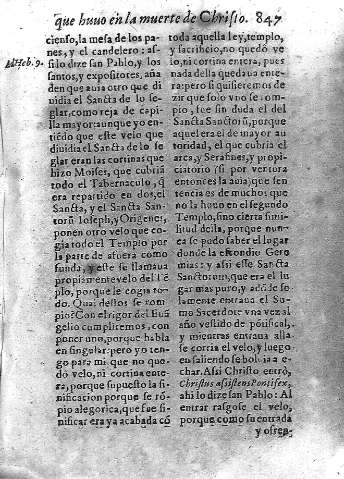 que huuo en la muerte de Christo. 847
Ad Heb. 9.
cienso, la mesa de los pa-
nes, y el candelero: as-
si lo dize san Pablo, y los
santos, y expositores, aña
den que auia otro que di
uidia el Sancta de lo se-
glar, como reja de capi-
lla mayor: aunque yo en-
tiẽdo que este velo que
diuidia el Sancta de lo se
glar eran las cortinas que
hizo Moises, que cubriã
todo el Tabernaculo, q̃
era repartido en dos, el
Sancta, y el Sancta San-
torũ Ioseph, y Origenes,
ponen otro velo que co-
gia todo el Templo por
la parte de afuera como
funda, y este se llamaua
propiamente velo del Tẽ
plo, porque le cogia to-
do. Qual destos se rom-
pio? Con el rigor del Euã
gelio cumpliremos, con
poner uno, porque habla
en singular: pero yo ten-
go para mi que no que-
dó velo, ni cortina ente-
ra, porque supuesto la si-
nificacion porque se rõ-
pio alegorica, que fue si-
nificar era ya acabada cõ
toda aquella ley, templo,
y sacrificio, no quedó ve
lo, ni cortina entera, pues
nada della quedaua ente-
ra: pero si quisieremos de
zir que solo vno se rom-
pio, fue sin duda el del
Sancta Sanctorũ, porque
aquel era el de mayor au
toridad, el que cubria el
arca, y Serafines, y propi-
ciatorio (si por vertura
entonces la auia) que sen
tencia es de muchos que
no la huuo en el segundo
Templo, sino cierta simi-
litud della, porque nun-
ca se pudo saber el lugar
donde la escondio Gero
mias: y assi este Sancta
Sanctorum, que era el lu
gar mas puro, y adõde so
lamente entraua el Su-
mo Sacerdote vna vez al
año vestido de põtifical,
y mientras entraua alla
se corria el velo, y luego
en saliendo se boluia a e-
char. Assi Christo entrò,
Christus assistens Pontifex,
ahi lo dize san Pablo: Al
entrar rasgose el velo,
porque como su entrada
y ofren